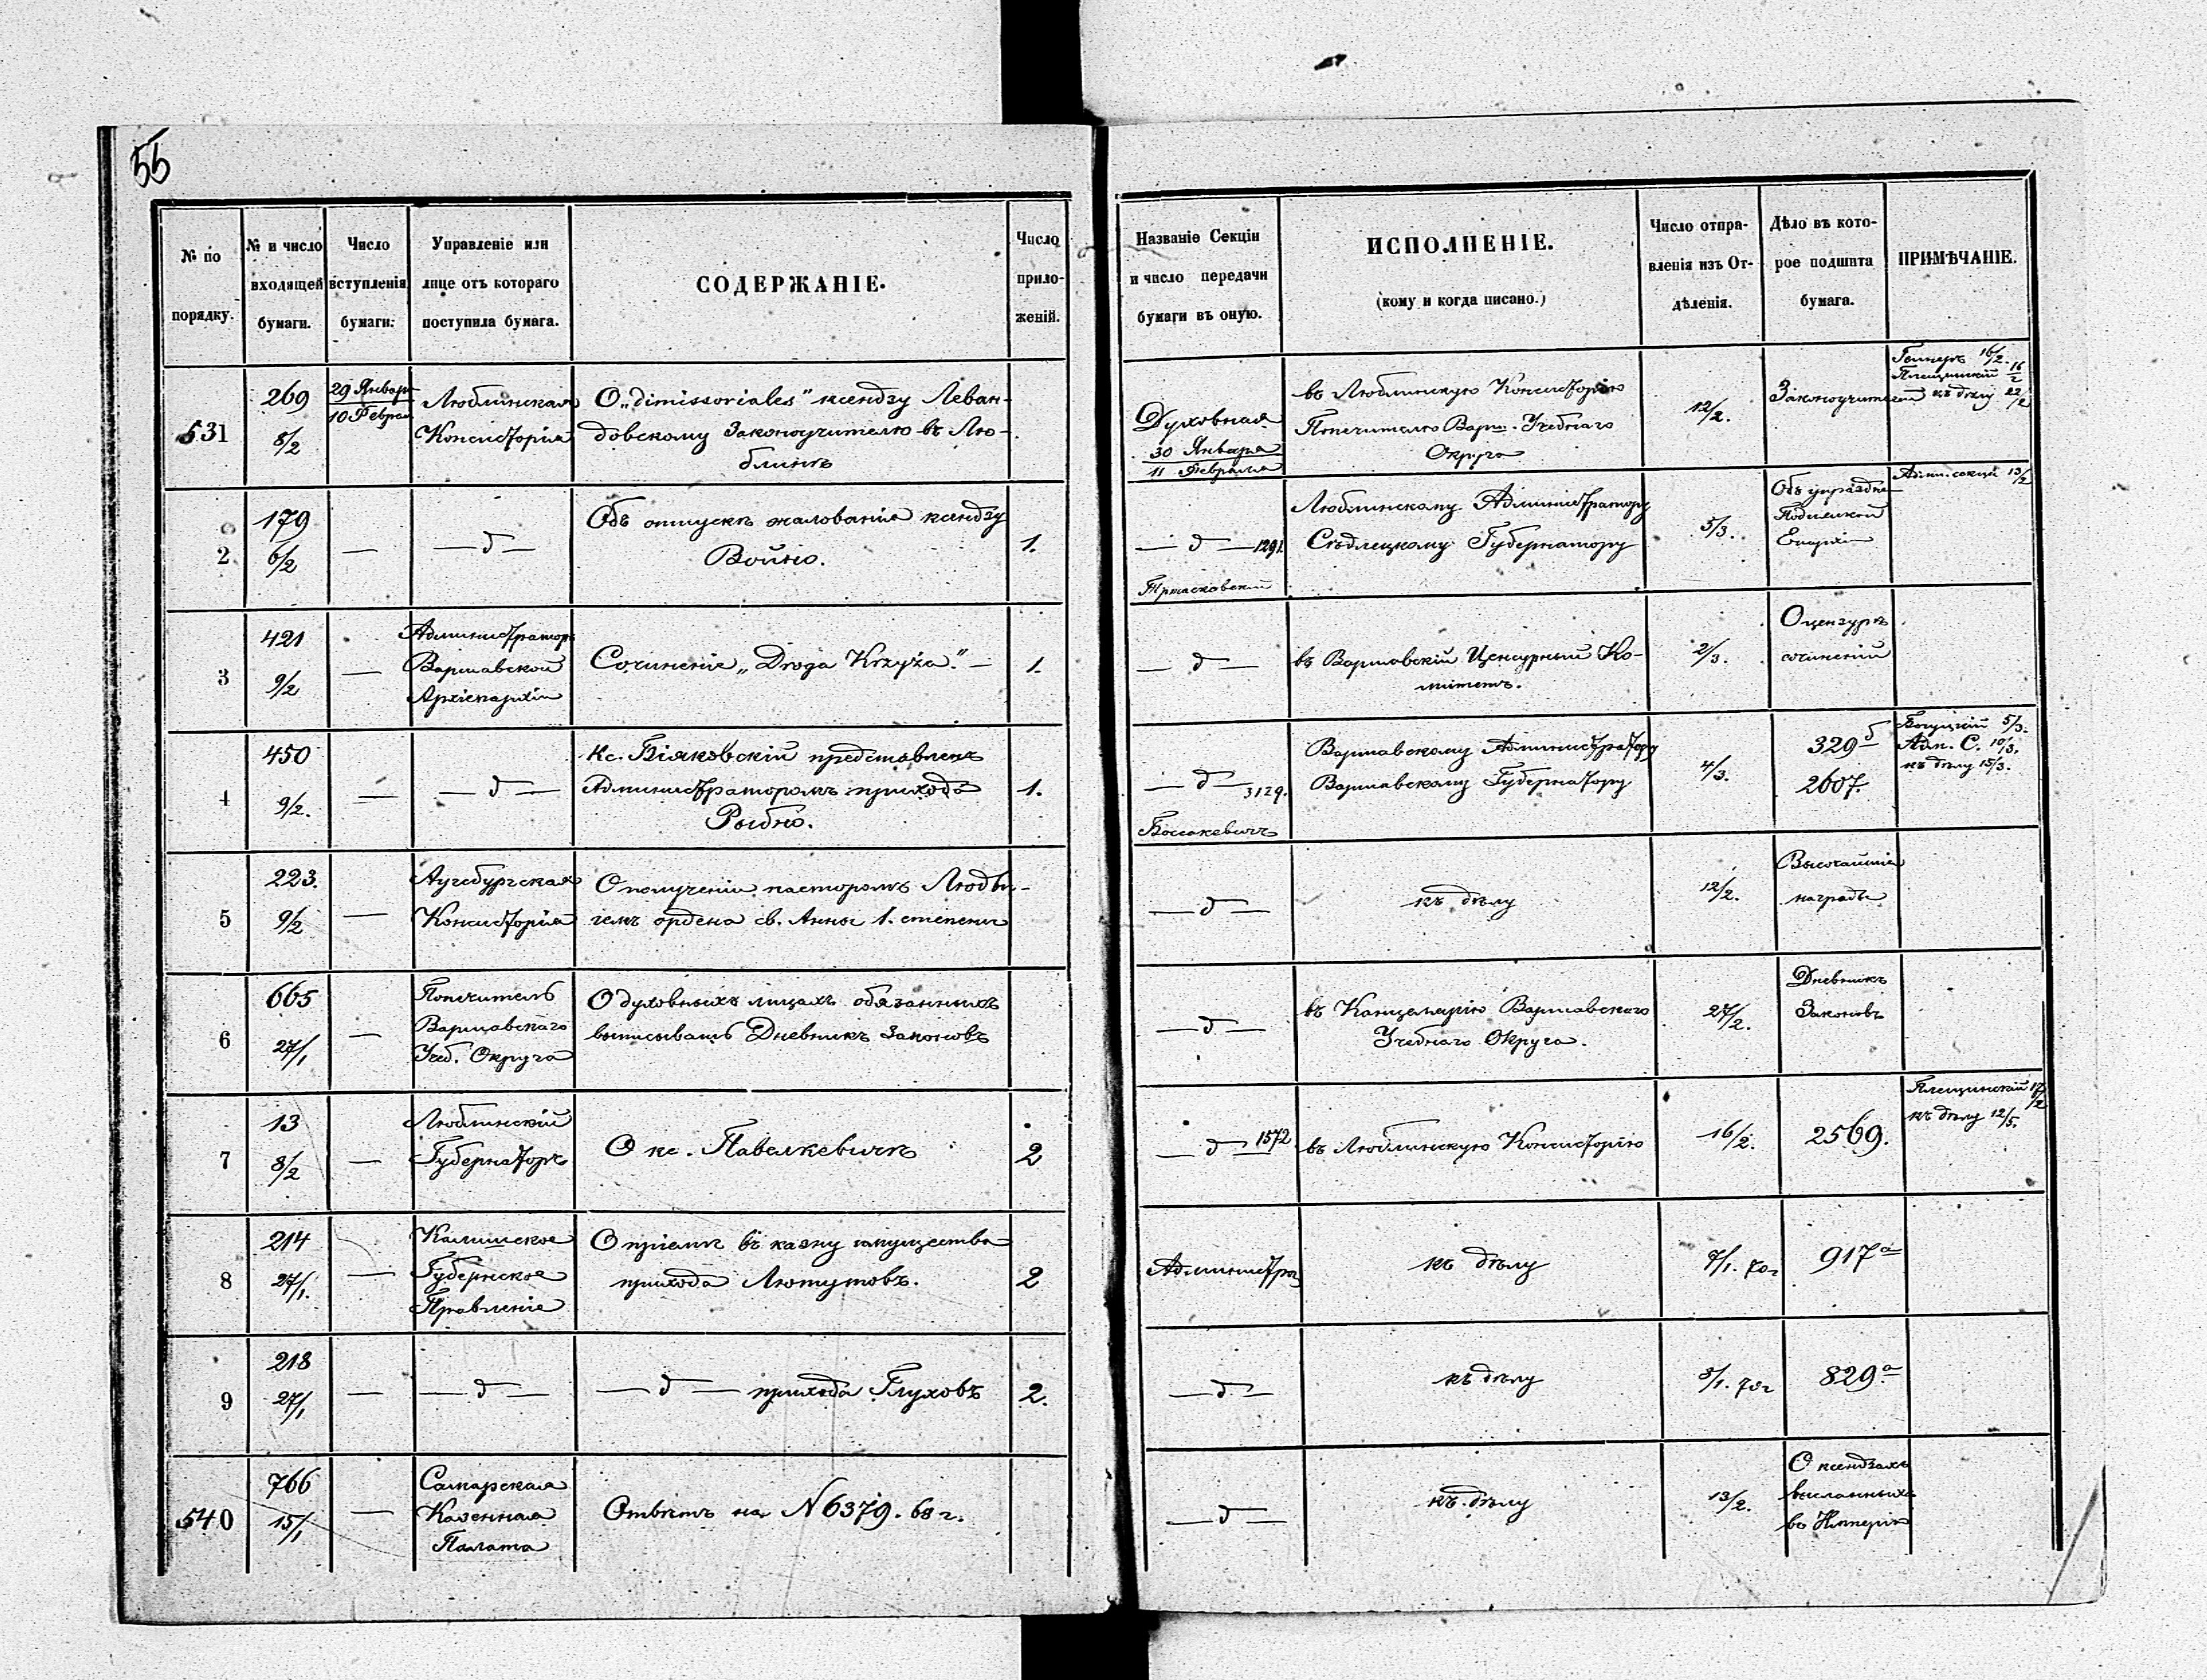 55
№ по
порядку.
№ и число
входящей
бумаги.
Число
вступленія
бумаги.
Управленіе или
лице отъ котораго
поступила бумага.
СОДЕРЖАНІЕ.
Число
прило-
женій.
Названіе Секціи
и число передачи
бумаги въ оную.
ИСПОЛНЕНІЕ.
(кому и когда писано.)
Число отпра-
вленія изъ От-
дѣленія.
Дѣло въ кото-
рое подшита
бумага.
ПРИМѢЧАНІЕ.
531
269
8/2
29 Января
10 Феврал
Люблинская
Консисторія
О „dimissoriales" ксендзу Леван-
довскому Законоучителю въ Лю-
блинѣ
Духовная
30 Января
11 Февраля
въ Люблинскую Консисторію
Попечителю Варш. Учебнаго
Округа
12/2.
Законоучителей
16/2.
Плещинскій 16/2
къ дѣлу 22/2
2
179
6/2
—
— д —
Объ отпускѣ жалованія ксендзу
Войно.
1.
— д — 1291.
Люблинскому Администратору
Сѣдлецкому Губернатору
5/3.
Объ упраздне
Подляской
Епархіи
Адм. секціи 13/2
3
421
9/2
—
Администраторъ
Варшавской
Архіепархіи
Сочиненіе „Droga Krzyża." —
1.
— д —
въ Варшавскій Ценсурный Ко-
митетъ.
2/3.
О цензурѣ
сочиненій
4
450
9/2.
—
— д —
Кс. Біяковскій представленъ
Администраторомъ прихода
Рыбно.
1.
— д — 3129.
Варшавскому Администратору
Варшавскому Губернатору
4/3.
329 б
2607.
Богуцкій 5/3.
Адм. С. 10/3.
къ дѣлу 15/3.
5
223.
9/2
—
Аугсбургская
Консисторія
О полученіи пасторомъ Людви-
гемъ ордена св. Анны 1. степени
— д —
къ дѣлу
12/2.
Высочайшіе
награды
6
665
27/1
—
Попечитель
Варшавскаго
Учеб. Округа
О духовныхъ лицахъ обязанныхъ
выписывать Дневникъ Законовъ
— д —
въ Канцелярію Варшавскаго
Учебнаго Округа.
27/2.
Дневникъ
Законовъ
7
13
8/2
—
Люблинскій
Губернаторъ
О кс. Павелкевичѣ
2
— д — 1572
въ Люблинскую Консисторію
16/2.
2569.
Плещинскій 17/2
къ дѣлу 12/5.
8
214
27/1.
—
Калишское
Губернское
Правленіе
О пріемѣ въ казну имущества
прихода Лютутовъ.
2
Администр.
къ дѣлу
7/1. 70 г
917 а
9
218
27/1
—
— д —
— д — прихода Глуховъ
2.
— д —
къ дѣлу
8/1. 70 г
829 а
540
766
15/1
—
Самарская
Казенная
Палата
Отвѣтъ на N 6379. 68 г.
— д —
къ дѣлу
13/2.
О ксендзахъ
высланныхъ
въ Имперію